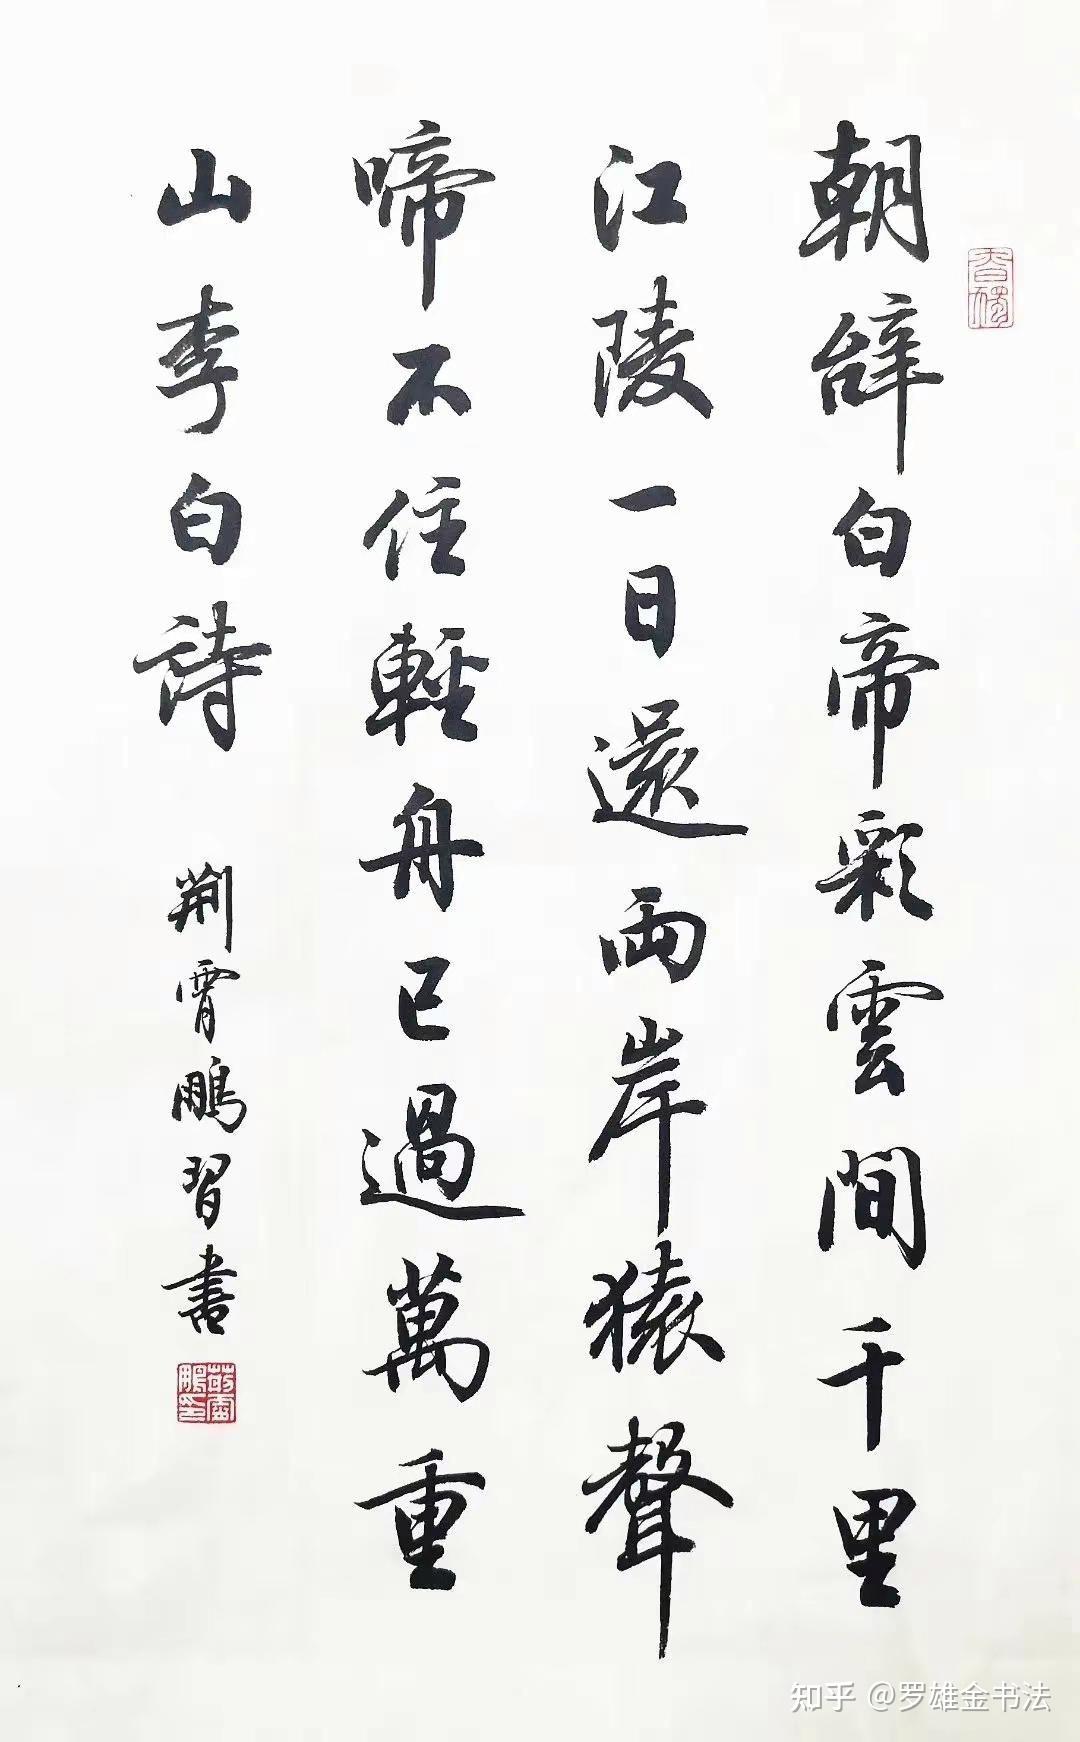 朝辭白帝彩雲間千里
江陵一日還兩岸猿聲
啼不住輕舟已過萬重
山李白詩
荆霄鵬習書
知乎 @罗雄金书法